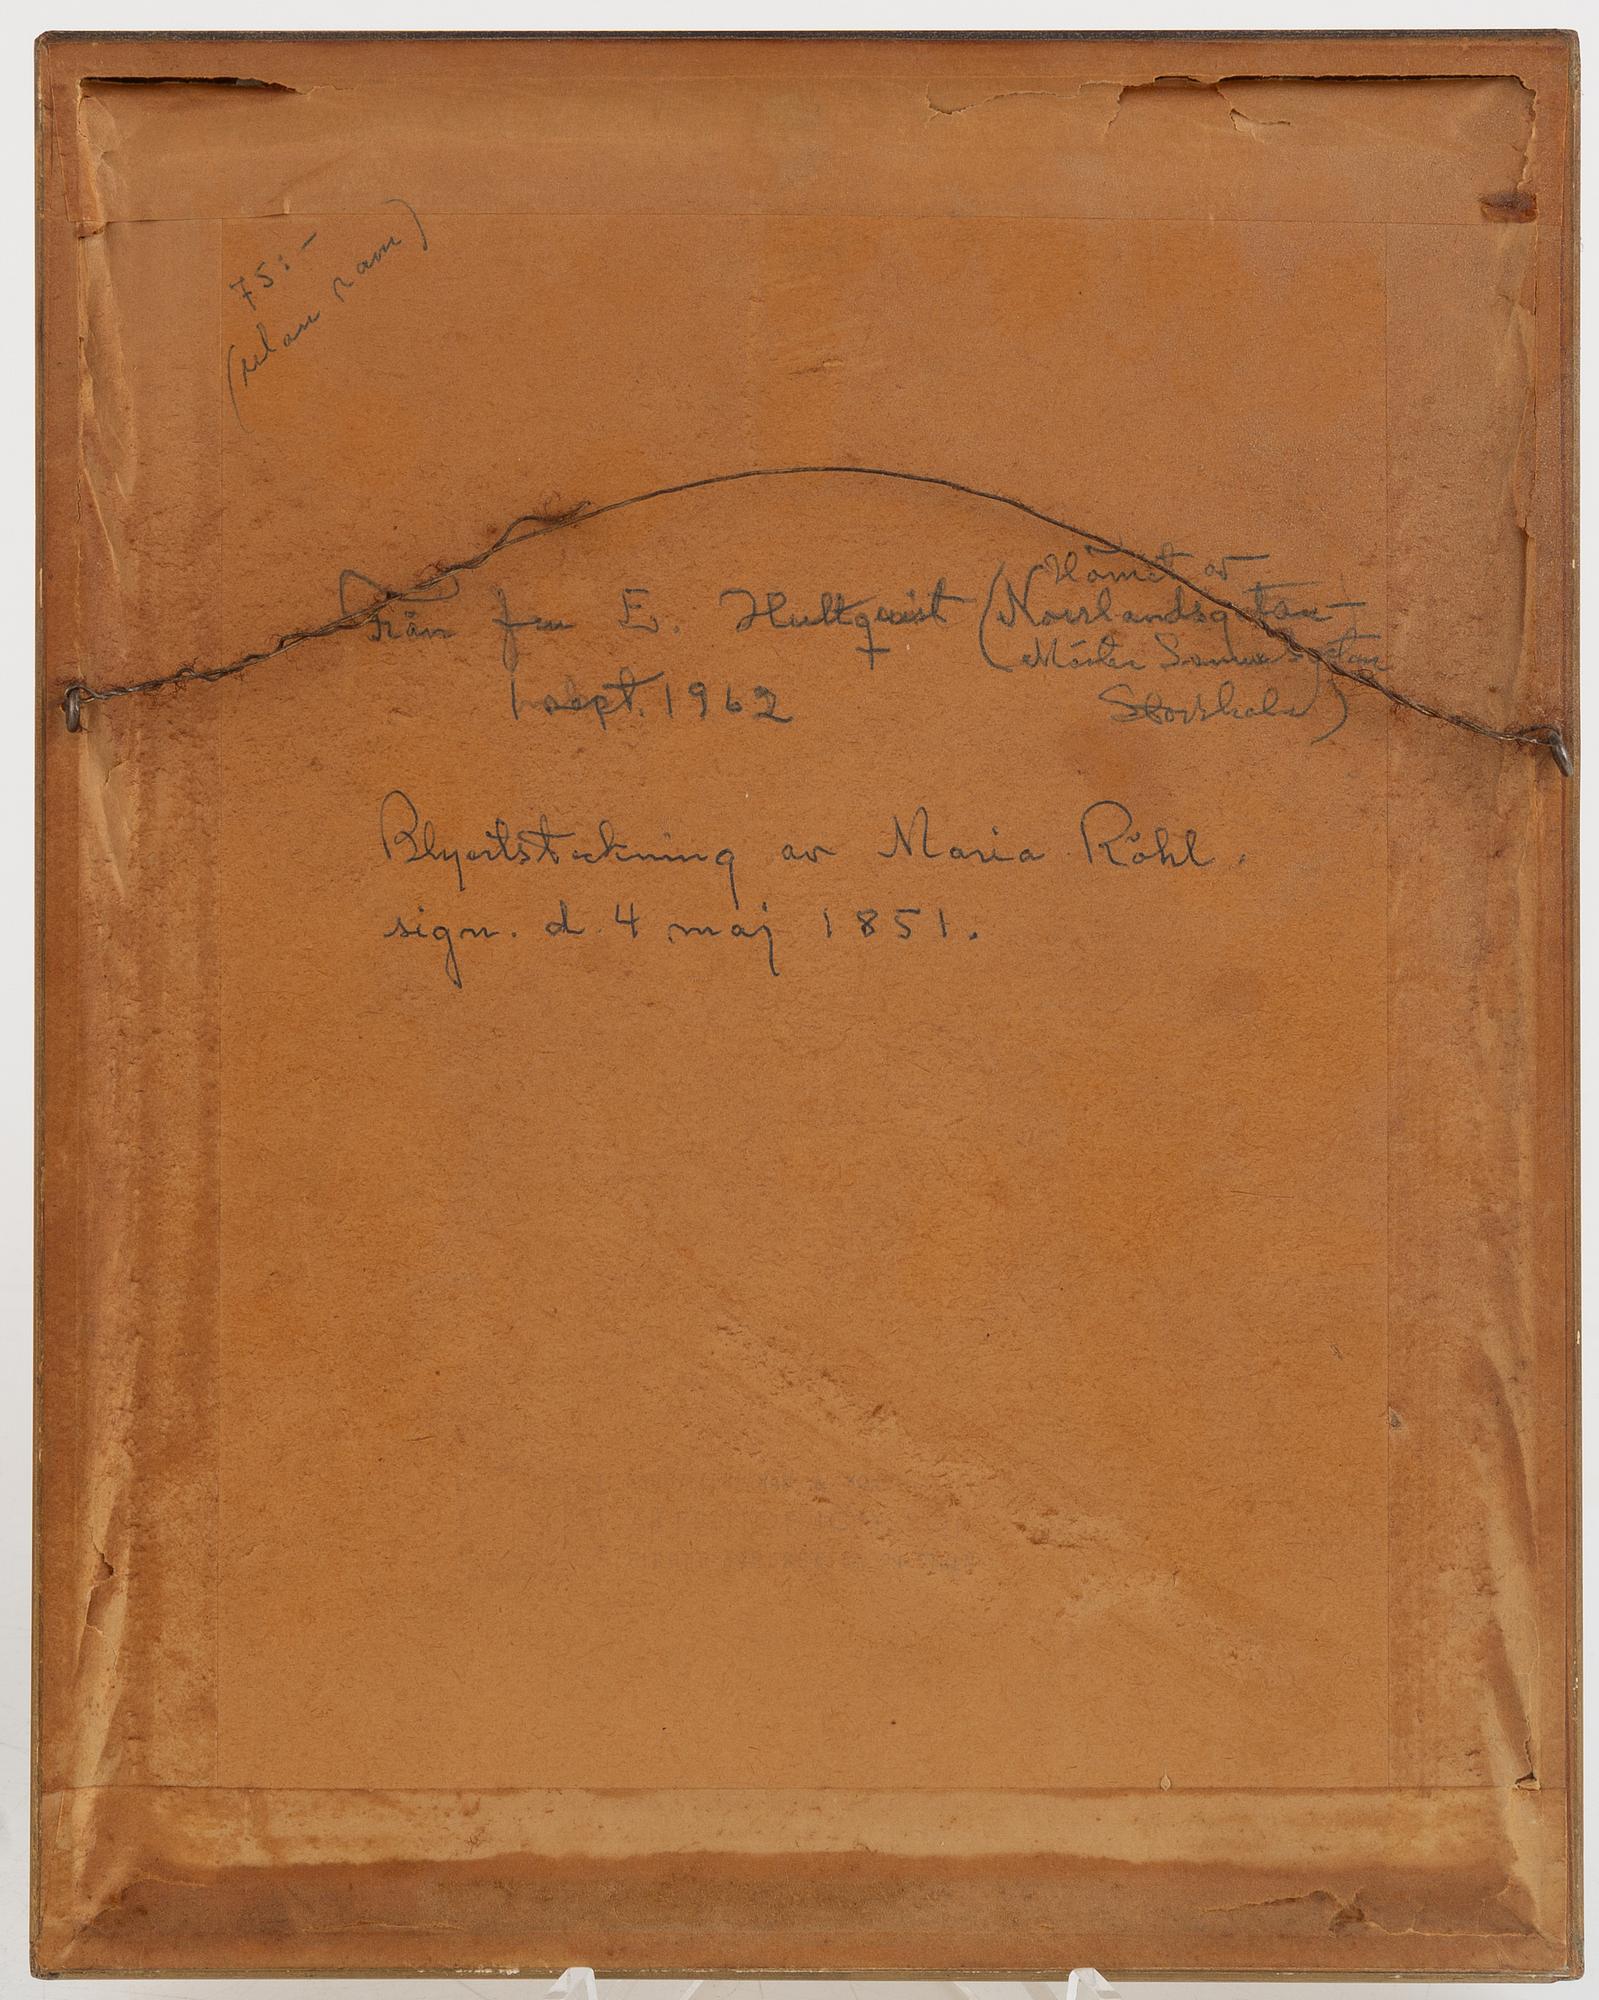 75:-
(utan ram)
Från fru E. Hultquist (Hörnet av
Norrlandsgatan-
Mäster Samuelsgatan
Stockholm)
1 sept. 1962
Blyertsteckning av Maria Röhl.
sign. d. 4 maj 1851.